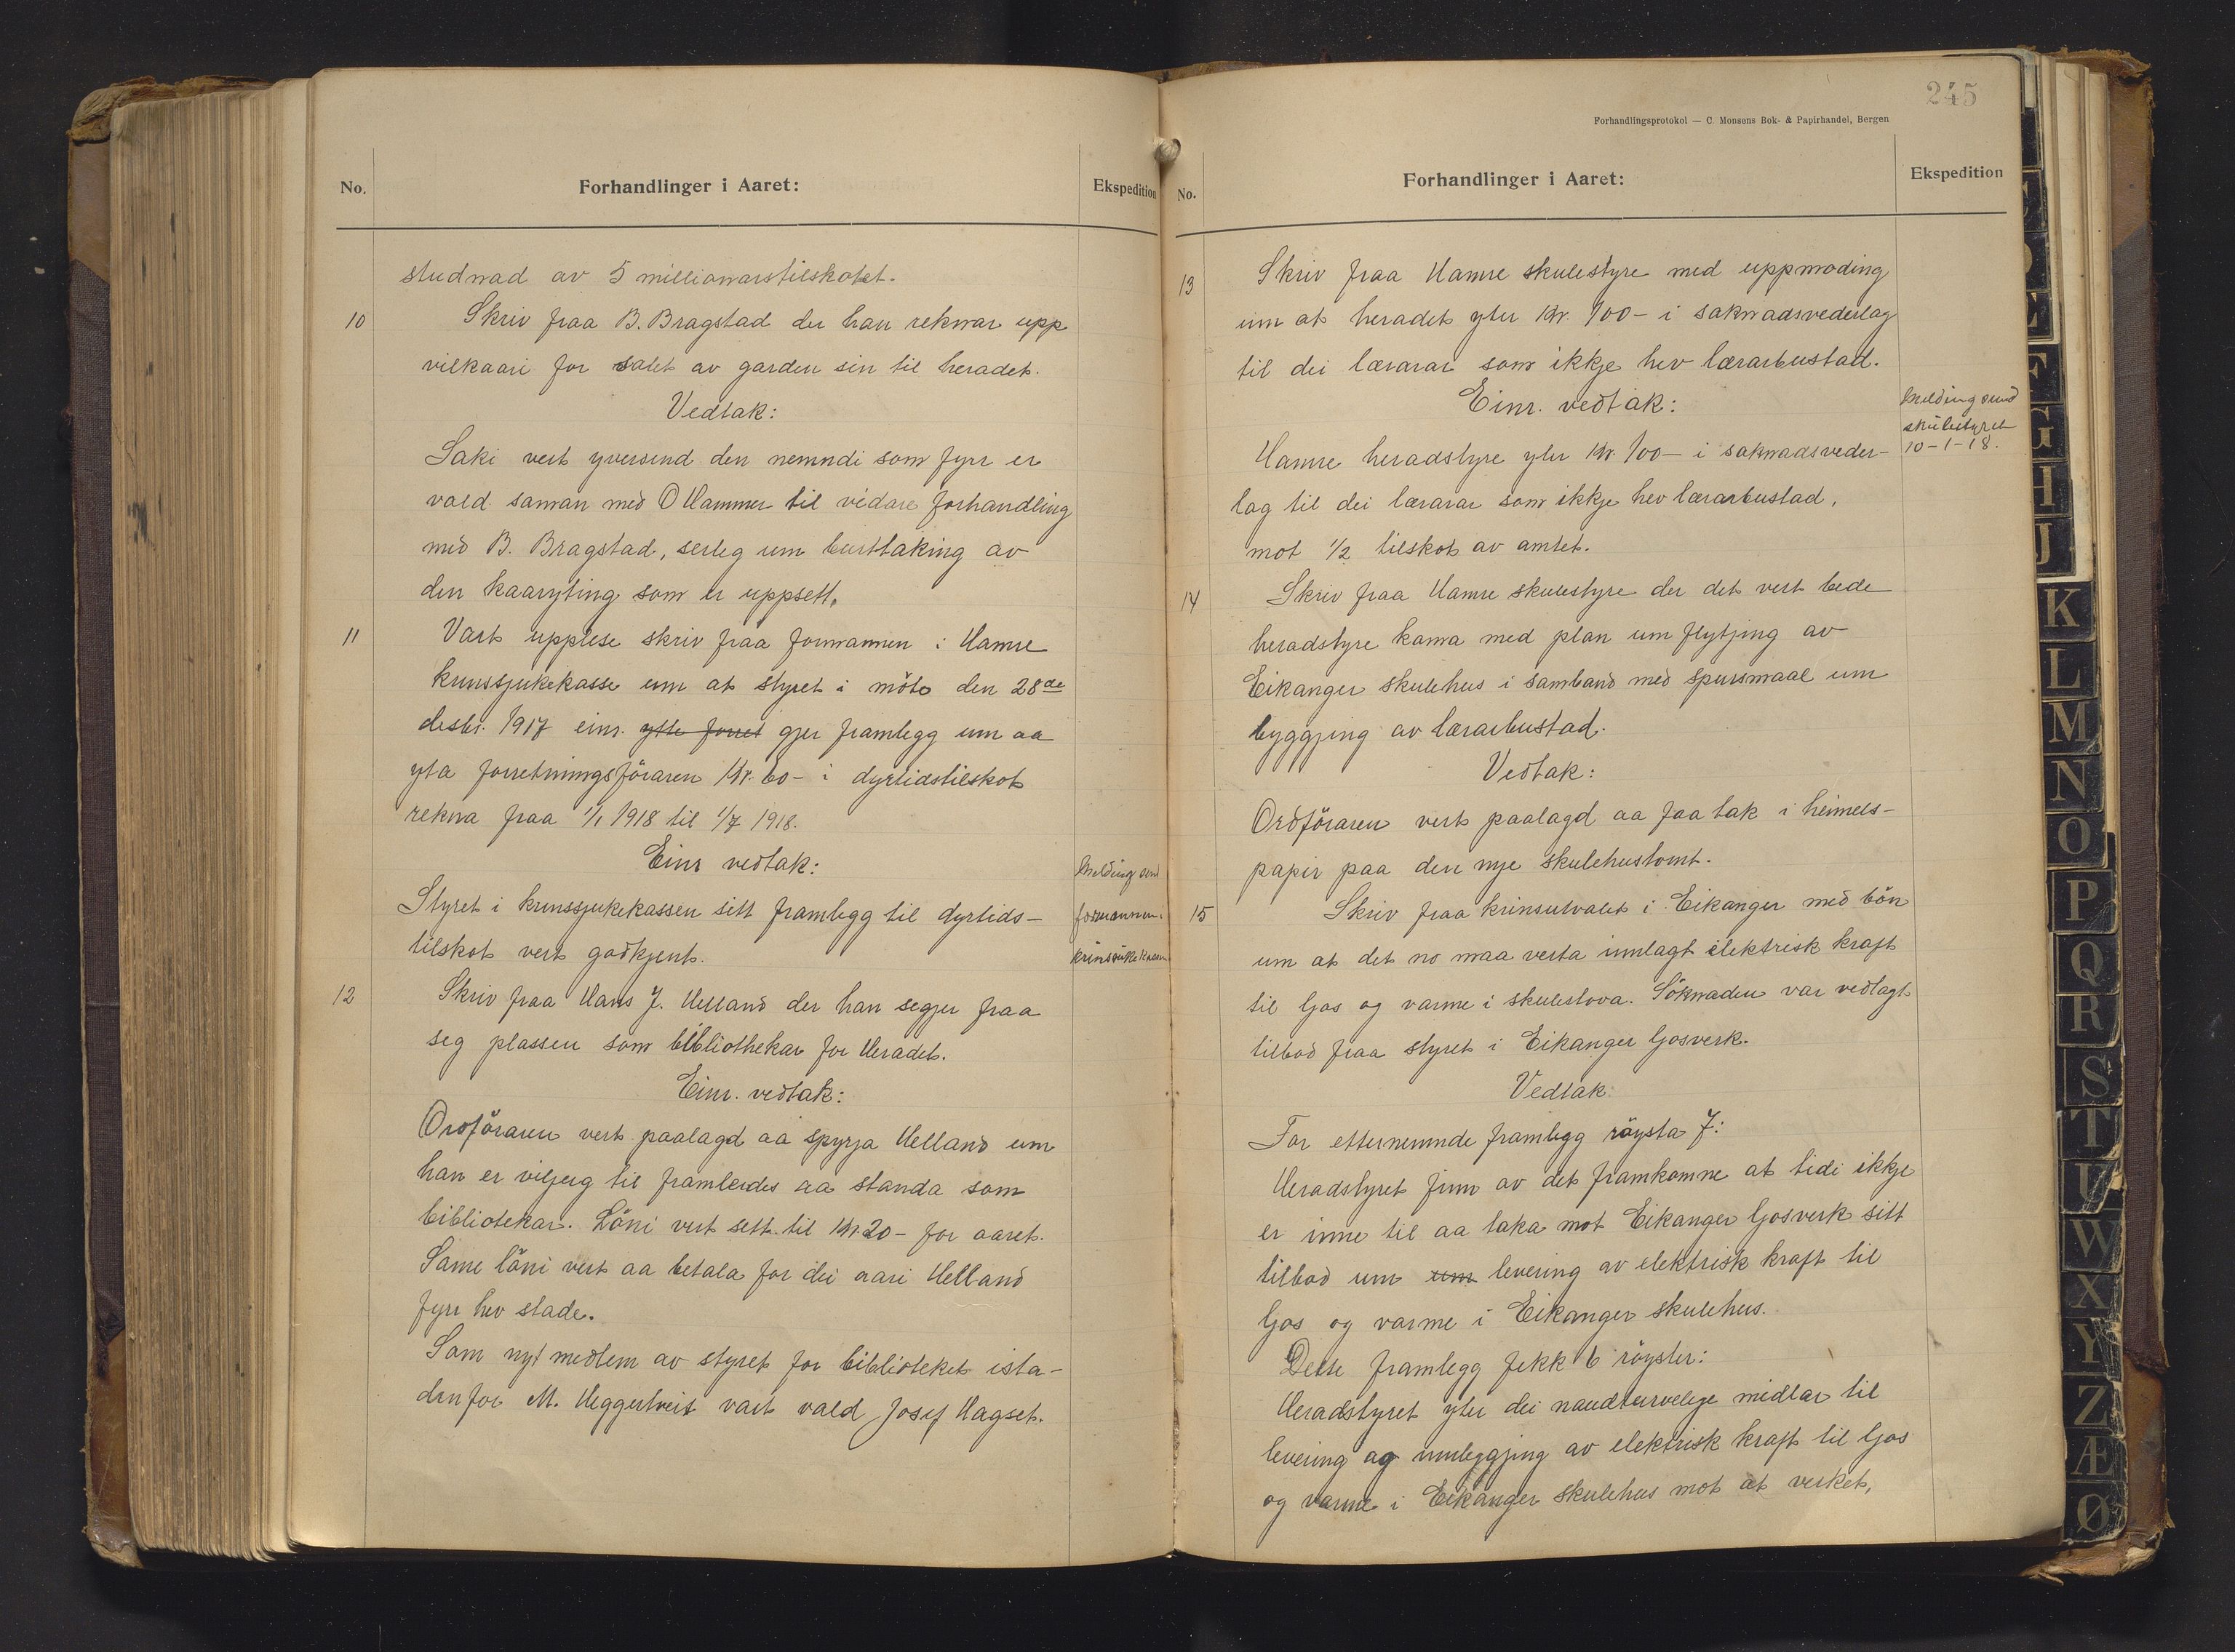 No.
Forhandlinger i Aaret:
Ekspedition
studnad av 5 millionarstilskotet.
10
Skriv fraa B. Bragstad der han reknar upp
vilkaari for salet av garden sin til heradet.
Vedtak:
Saki vert yversend den nemndi som fyrr er
vald saman med O Hammer til vidare forhandling
med B. Bragstad, serleg um burttaking av
den kaaryting som er uppsett.
11
Vart upplese skriv fraa formannen i Hamre
krinssjukekasse um at styret i möte den 28de
desbr. 1917 einr. ytte forret gjer framlegg um aa
yta forretningsföraren Kr. 60- i dyrtidstilskot
rekna fraa 1/1 1918 til 1/7 1918.
Einr vedtak:
Styret i krinssjukekassen sitt framlegg til dyrtids-
tilskot vert godkjent.
Melding send
formannen i
krinssukekassen
12
Skriv fraa Hans J. Helland der han segjer fraa
seg plassen som bibliothekar for Heradet.
Einr. vedtak:
Ordföraren vert paalagd aa spyrja Helland um
han er viljug til framleides aa standa som
bibliotekar. Löni vert sett til Kr 20- for aaret.
Same löni vert aa betala for dei aari Helland
fyrr hev stade.
Som nyt medlem av styret for biblioteket ista-
denfor M. Heggertveit vart vald Josef Hagset.
245
Forhandlingsprotokol — C. Monsens Bok- & Papirhandel, Bergen
No.
Forhandlinger i Aaret:
Ekspedition
13
Skriv fraa Hamre skulestyre med uppmoding
um at heradet yter Kr. 100- i saknadsvederlag
til dei lærarar som ikkje hev lærarbustad.
Einr. vedtak:
Hamre heradstyre yter Kr. 100- i saknadsveder-
lag til dei lærarar som ikkje hev lærarbustad,
mot 1/2 tilskot av amtet.
Melding send
skulestyret
10-1-18.
14
Skriv fraa Hamre skulestyre der det vert bede
heradstyre koma med plan um flytjing av
Eikanger skulehus i samband med spursmaal um
byggjing av lærarbustad.
Vedtak:
Ordföraren vert paalagd aa faa tak i heimels-
papir paa den nye skulehustomt.
15
Skriv fraa krinsutvalet i Eikanger med bön
um at det no maa verta innlagt elektrisk kraft
til ljos og varme i skulestova. Söknaden var vedlagt
tilbod fraa styret i Eikanger ljosverk.
Vedtak:
For etternemnde framlegg röysta 7:
Heradstyret finn av det framkomne at tidi ikkje
er inne til aa taka mot Eikanger ljosverk sitt
tilbod um um levering av elektrisk kraft til
ljos og varme i Eikanger skulehus.
Dette framlegg fekk 6 röyster:
Heradstyret yter dei naudturvelege midlar til
levering og innleggjing av elektrisk kraft til ljos
og varme i Eikanger skulehus mot at verket,
E
G
I
J
K
L
M
N
O
P
Q
R
S
T
U
W
X
Y
Z
Æ
Ø